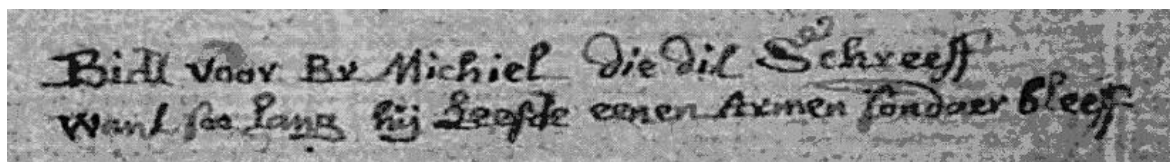 Bidt voor Br Michiel die dit Schreeff
Want soo lang hij Leefde eenen Armen sondaer bleeff